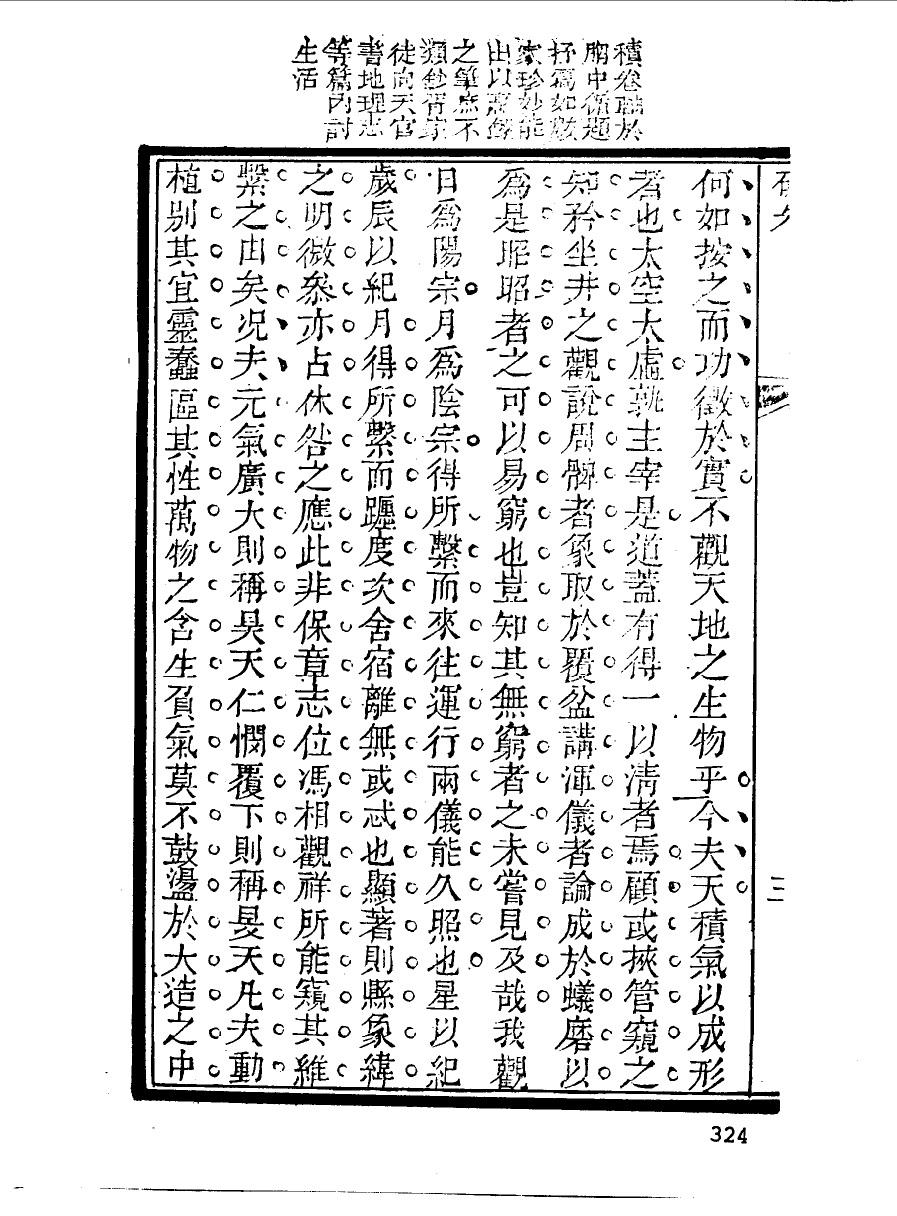 積卷軸於
胸中循題
抒寫如數
家珍妙能
出以熔鑄
之筆庶不
類鈔胥家
徒向天官
書地理志
等篇內討
生活
三
何如按之而功徵於實不觀天地之生物乎今夫天積氣以成形
者也太空太虛孰主宰是道蓋有得一以清者焉顧或挾管窺之
知矜坐井之觀說周髀者象取於覆盆講渾儀者論成於蟻磨以
爲是昭昭者之可以易窮也豈知其無窮者之未嘗見及哉我觀
日爲陽宗月爲陰宗得所繫而來往運行兩儀能久照也星以紀
歲辰以紀月得所繫而躔度次舍宿離無或忒也顯著則縣象緯
之明微叅亦占休咎之應此非保章志位馮相觀祥所能窺其維
繫之由矣况夫元氣廣大則稱昊天仁憫覆下則稱旻天凡夫動
植別其宜靈蠢區其性萬物之含生負氣莫不鼓盪於大造之中
324